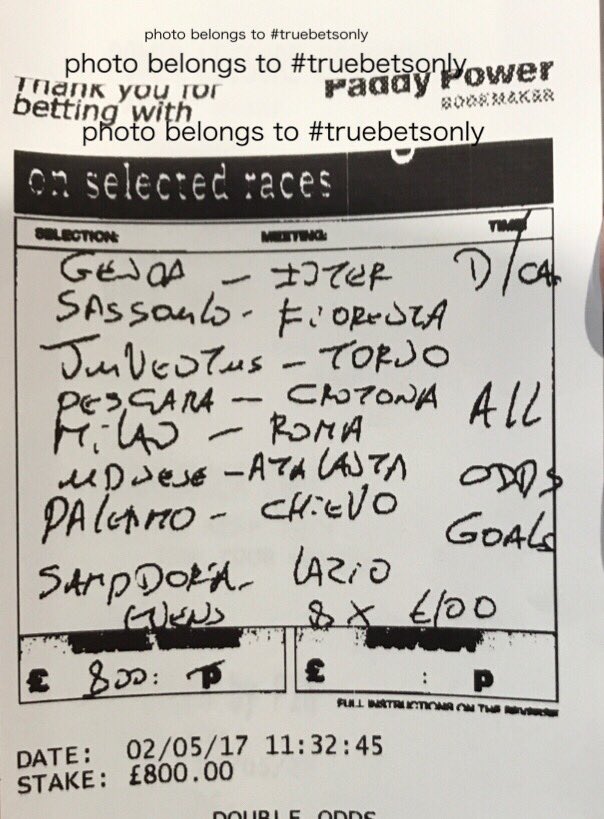 photo belongs to #truebetsonly
photo belongs to #truebetsonly
Thank you for
betting with
Paddy Power
BOOKMAKER
photo belongs to #truebetsonly
on selected races
SELECTION: MEETING: TIME
GENOA - INTER D/CA
SASSOULO - FIORENTA
JUNVENTUS - TORINO
PESCARA - CROTONA ALL
MILAO - ROMA
UDINESE - ATALANTA ODDS
PALERMO - CHIEVO
GOALS
SAMPDORIA - LAZIO
8 X £100
£ 800: P £ : P
FULL INSTRUCTIONS ON THE REVERSE
DATE: 02/05/17 11:32:45
STAKE: £800.00
DOUBLE ODDS